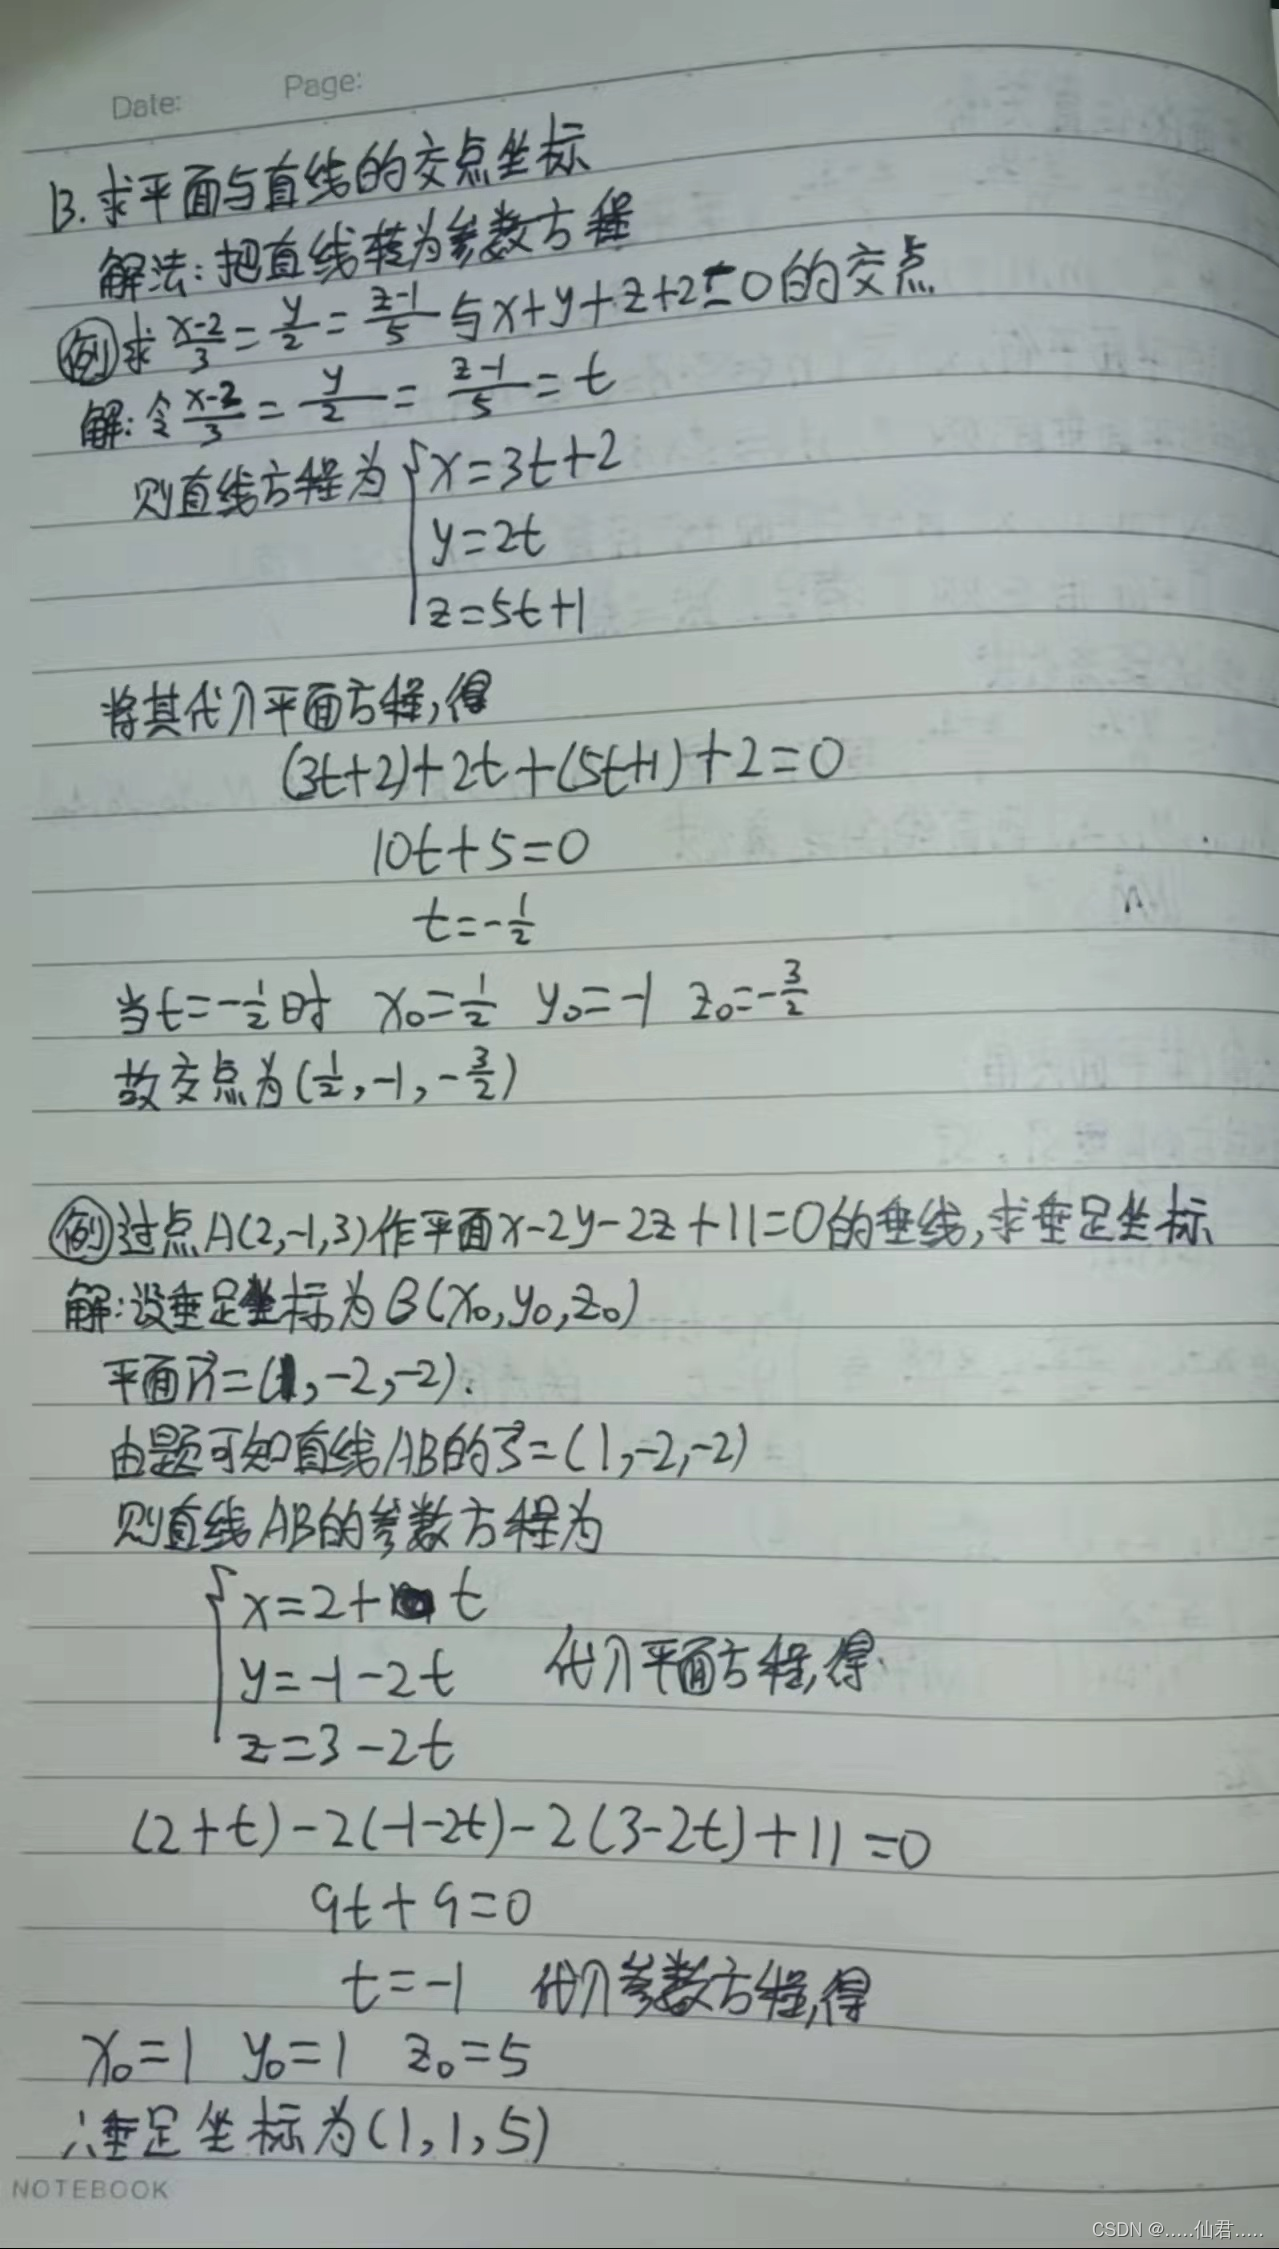 Date: Page:
13. 求平面与直线的交点坐标
解法:把直线转为参数方程
例 求 (x-2)/3 = y/2 = (z-1)/5 与 x+y+z+2=0 的交点
解:令 (x-2)/3 = y/2 = (z-1)/5 = t
则直线方程为 { x=3t+2
y=2t
z=5t+1
将其代入平面方程,得
(3t+2)+2t+(5t+1)+2=0
10t+5=0
t=-1/2
当t=-1/2时 x₀=1/2 y₀=-1 z₀=-3/2
故交点为(1/2,-1,-3/2)
例 过点A(2,-1,3)作平面x-2y-2z+11=0的垂线,求垂足坐标
解:设垂足坐标为B(x₀,y₀,z₀)
平面n⃗=(1,-2,-2).
由题可知直线AB的s⃗=(1,-2,-2)
则直线AB的参数方程为
{ x=2+t
y=-1-2t 代入平面方程,得
z=3-2t
(2+t)-2(-1-2t)-2(3-2t)+11=0
9t+9=0
t=-1 代入参数方程,得
x₀=1 y₀=1 z₀=5
∴垂足坐标为(1,1,5)
NOTEBOOK
CSDN @.....仙君.....